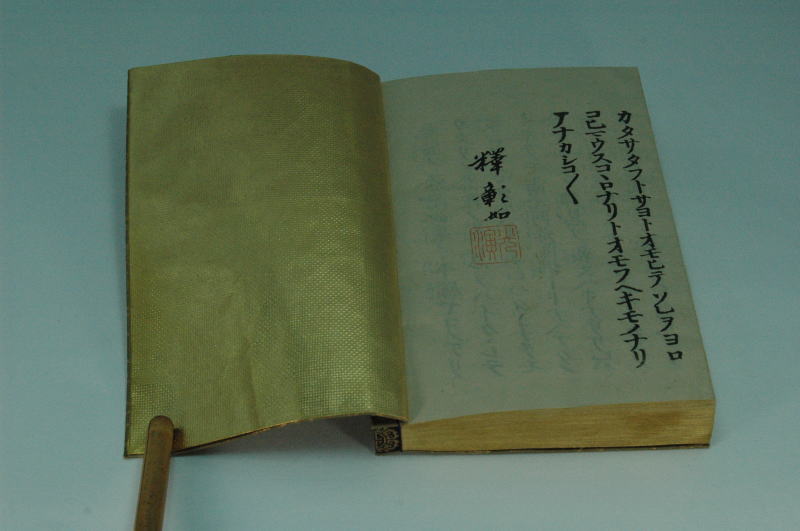 カタサタフトサヨトオモヒテソレヲヨロ
コヒマウスコヽロナリトオモフヘキモノナリ
アナカシコ〱
釋彰如
光演